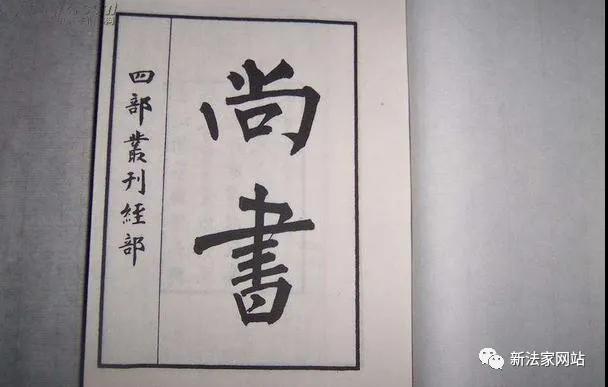 尚書
四部叢刊經部
新法家网站